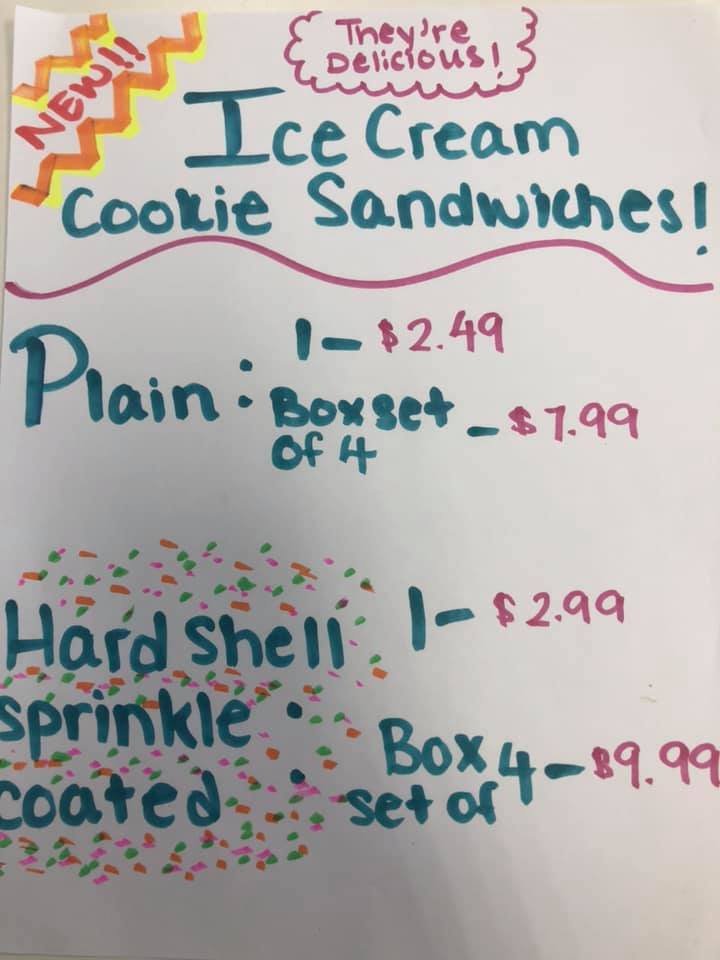 NEW!!
They're
Delicious!
Ice Cream
Cookie Sandwiches!
Plain: 1- $2.49
Box set
of 4 - $7.99
Hard shell
sprinkle :
coated
1- $2.99
Box
set of 4 - $9.99